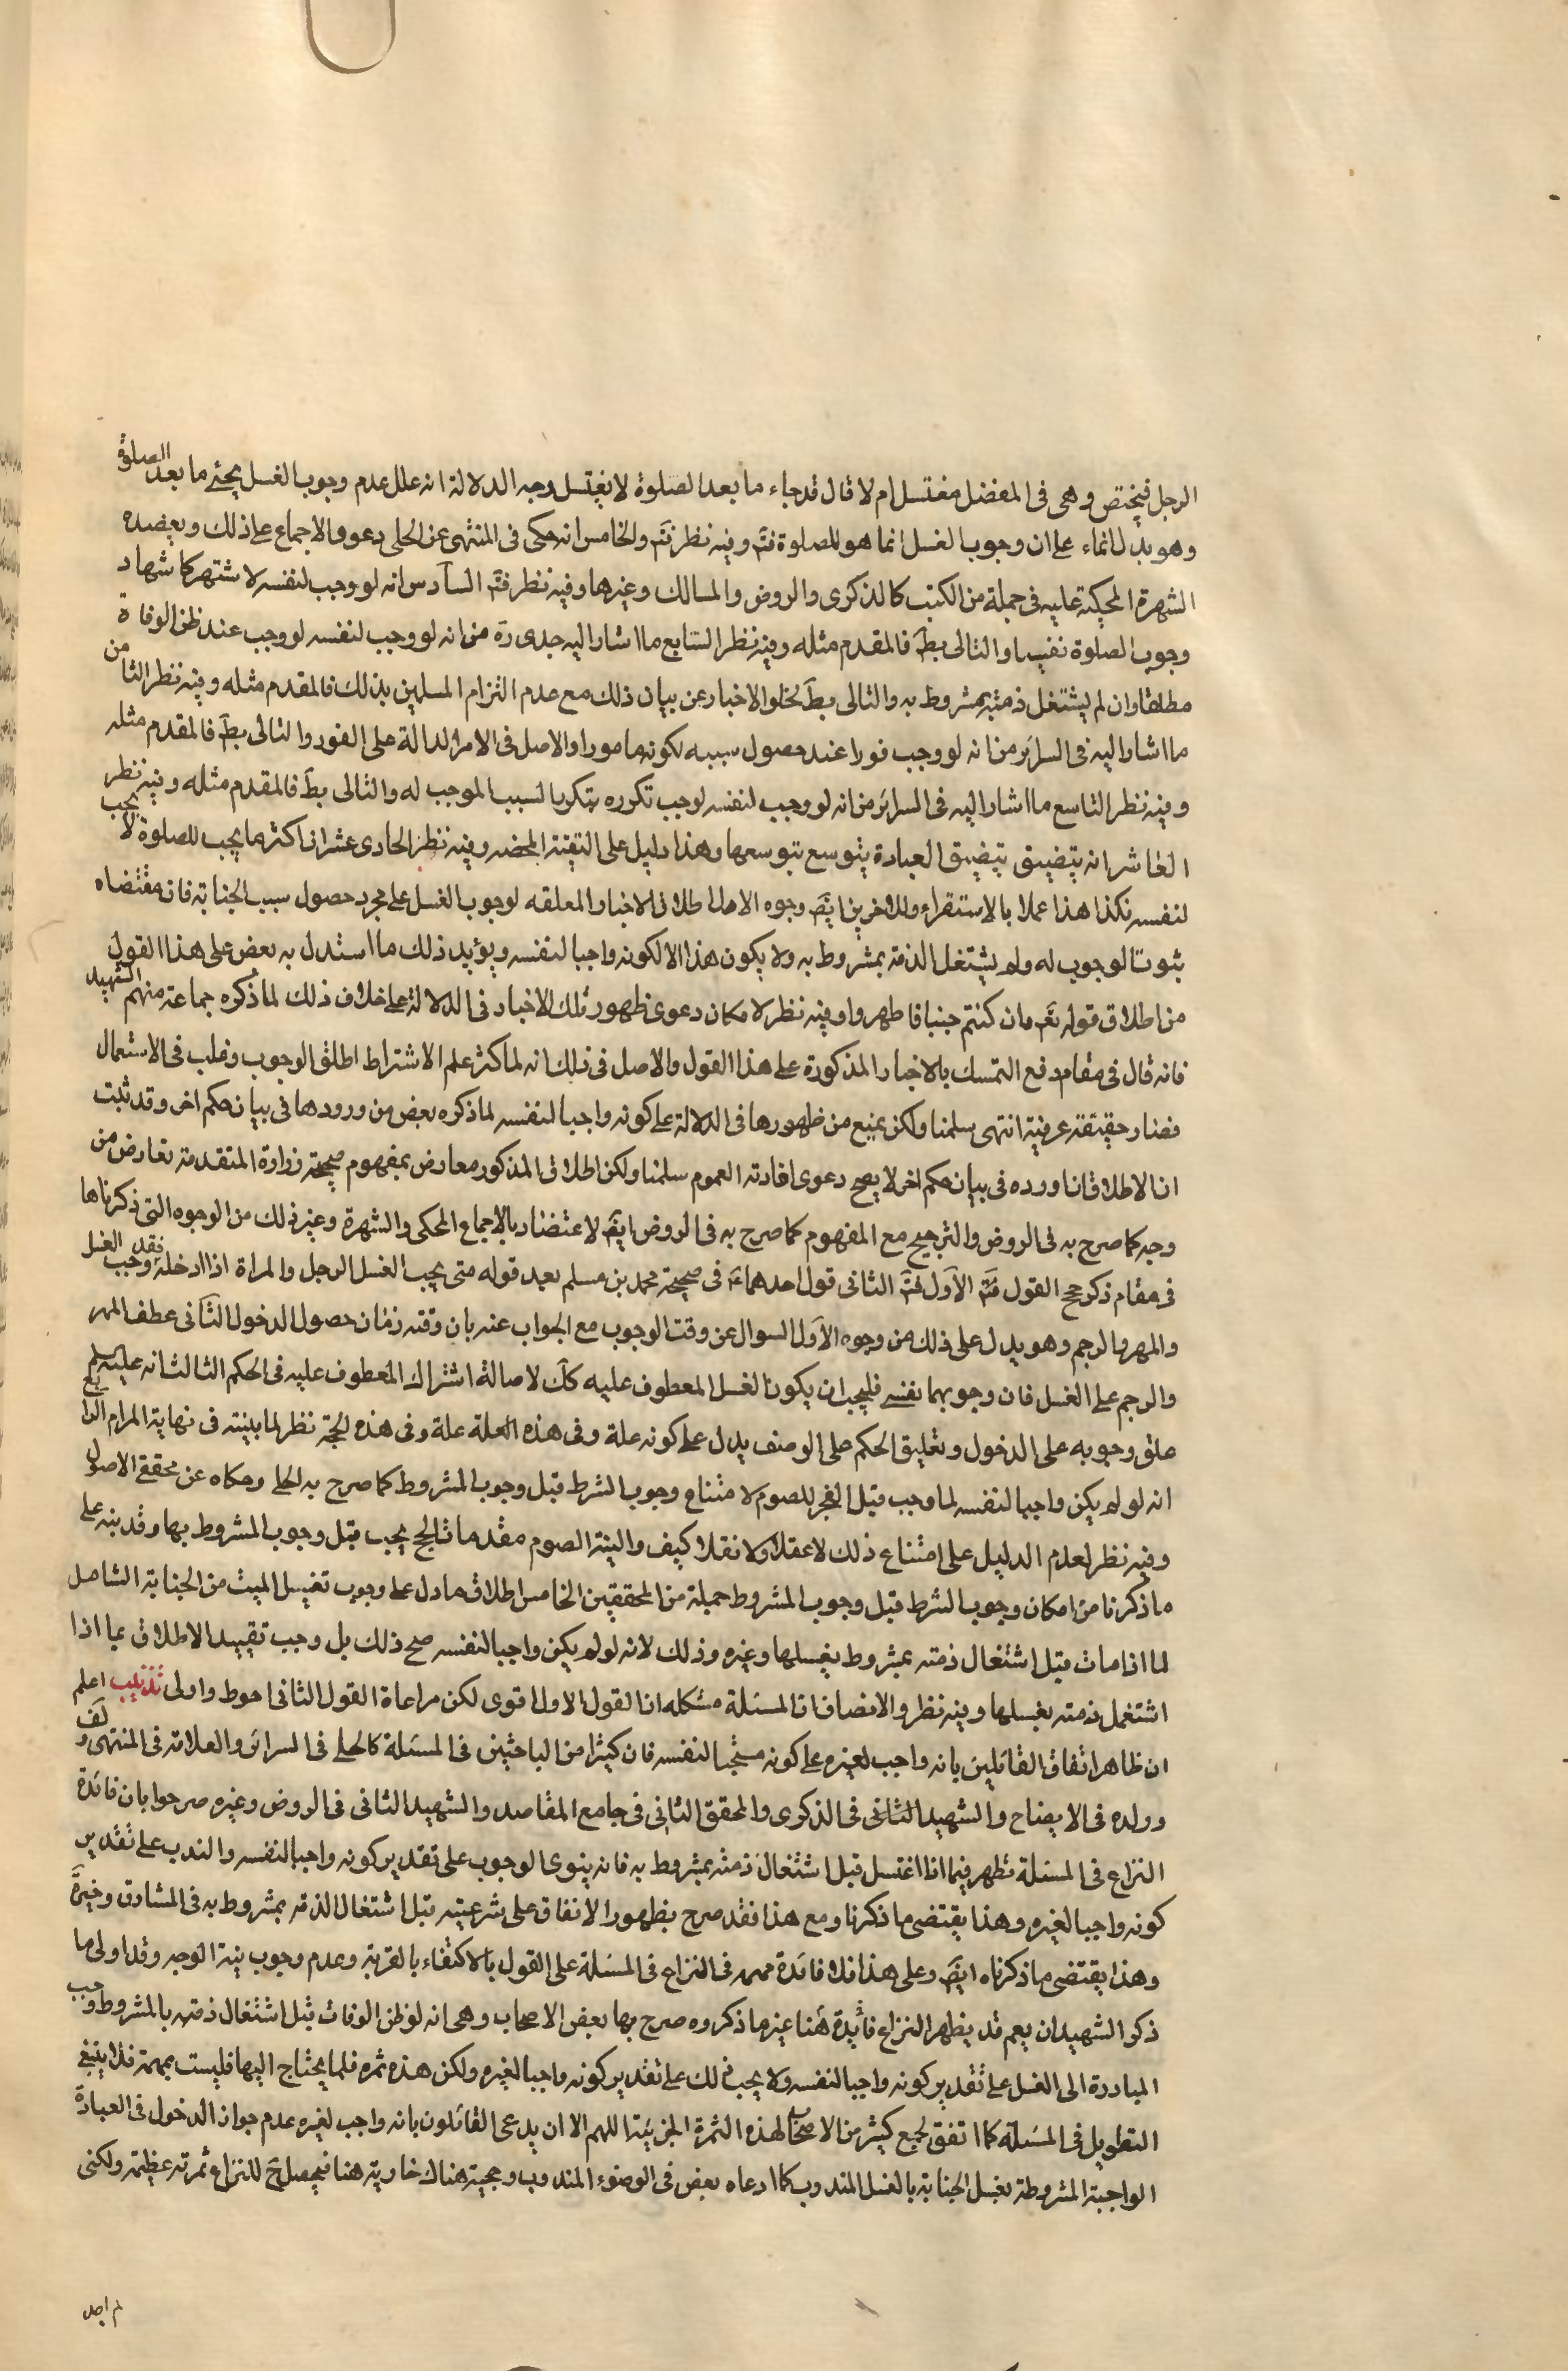 الرجل فيختص وهى فى المغتسل مغتسل ام لا قال قد جاء ما بعد الصلوة لا يغتسل وجه الدلالة انه علل عدم وجوب الغسل بمجئ ما بعد الصلوة
وهو يدل انماء على ان وجوب الغسل انما هو للصلوة فتم وفيه نظر فتم والخامس انه حكى فى المنتهى عن الحلى دعوى الاجماع على ذلك ويعضده
الشهرة المحكية عليه فى جملة من الكتب كالذكرى والروض والمسالك وغيرها وفيه نظر فتم السادس انه لو وجب لنفسه لاشتهر كاشتهار
وجوب الصلوة نفيسا والتالى بط فالمقدم مثله وفيه نظر السابع ما اشار اليه جدى ره من انه لو وجب لنفسه لوجب عند ظن الوفاة
مطلقا وان لم يشتغل ذمته بمشروط به والتالى بط لخلو الاخبار عن بيان ذلك مع عدم التزام المسلمين بذلك فالمقدم مثله وفيه نظر الثامن
ما اشار اليه فى السرائر من انه لو وجب فورا عند حصول سببه لكونه مامورا والاصل فى الامر الدالة على الفور والتالى بط فالمقدم مثله
وفيه نظر التاسع ما اشار اليه فى السرائر من انه لو وجب لنفسه لوجب تكرره بتكرر السبب الموجب له والتالى بط فالمقدم مثله وفيه نظر
العاشر انه يتضيق بتضيق العبادة يتوسع بتوسعها وهذا دليل على التقية المحضه وفيه نظر الحادى عشر ان اكثر ما يجب للصلوة لا يجب
لنفسه فكذا هذا عملا بالاستقراء وللاخرين ايضا وجوه الاول اطلاق الاخبار المعلقه لوجوب الغسل على مجرد حصول سبب الجنابة فان مقتضاه
ثبوت الوجوب له ولو لم يشتغل الذمة بمشروط به ولا يكون هذا الا لكونه واجبا لنفسه ويؤيد ذلك ما استدل به بعض على هذا القول
من اطلاق قوله تعم وان كنتم جنبا فاطهروا وفيه نظر لامكان دعوى ظهور تلك الاخبار فى الدلالة على خلاف ذلك لما ذكره جماعة منهم الشهيد
فانه قال فى مقام دفع التمسك بالاخبار المذكورة على هذا القول والاصل فى ذلك انه لما كثر علم الاشتراط اطلق الوجوب وغلب فى الاستعمال
فصار حقيقة عرفية انتهى سلمنا ولكن يمنع من ظهورها فى الدلالة على كونه واجبا لنفسه لما ذكره بعض من ورودها فى بيان حكم اخر وقد ثبت
ان الاطلاق اذا ورده فى بيان حكم اخر لا يصح دعوى افادته العموم سلمنا ولكن اطلاق المذكور معارض بمفهوم صحيحة زرارة المتقدمة تعارض من
وجه كما صرح به فى الروض والترجيح مع المفهوم كما صرح به فى الروض ايض لاعتضاد بالاجماع المحكى والشهرة وغير ذلك من الوجوه التى ذكرناها
فى مقام ذكر حجج القول الاول فتم الثانى قول احدهما ع فى صحيحة محمد بن مسلم بعد قوله متى يجب الغسل الرجل والمراة اذا ادخله فقد وجب الغسل
والمهر والرجم وهو يدل على ذلك من وجوه الاول السوال عن وقت الوجوب مع الجواب عنه بان وقته زمان حصول الدخول الثانى عطف المهر
والرجم على الغسل فان وجوبهما نفسى فليجب ان يكون الغسل المعطوف عليه كك لاصالة اشتراك المعطوف عليه فى الحكم الثالث انه عليه السلم
علق وجوبه على الدخول وتعليق الحكم على الوصف يدل على كونه علة وفى هذه العلة علة وفى هذه الحجة نظر لما بينته فى نهاية المرام الرابع
انه لو لم يكن واجبا لنفسه لما وجب قبل الفجر للصوم لامتناع وجوب الشرط قبل وجوب المشروط كما صرح به الحلى وحكاه عن محققى الاصول
وفيه نظر لعدم الدليل على امتناع ذلك لا عقلا ولا نقلا كيف والنية الصوم مقدمات الحج يجب قبل وجوب المشروط بها وقد نبه على
ما ذكرنا من امكان وجوب الشرط قبل وجوب المشروط جملة من المحققين الخامس اطلاق ما دل على وجوب تغسيل الميت من الجنابة الشامل
لما اذا مات قبل اشتغال ذمته بمشروط بغسلها وغيره وذلك لانه لو لم يكن واجبا لنفسه صح ذلك بل وجب تقييد الاطلاق بما اذا
اشتغل ذمته بغسلها وفيه نظر والانصاف ان المسئلة مشكله ان القول الاول اقوى لكن مراعاة القول الثانى احوط واولى تذنيب اعلم
ان ظاهر اتفاق القائلين بانه واجب لغيره على كونه مستحبا لنفسه فان كثيرا من الباحثين فى المسئلة كالحلى فى السرائر والعلامة فى المنتهى ولف
وولده فى الايضاح والشهيد الثانى فى الذكرى والمحقق الثانى فى جامع المقاصد والشهيد الثانى فى الروض وغيره صرحوا بان فائدة
النزاع فى المسئلة تظهر فيما اذا اغتسل قبل اشتغال ذمته بمشروط به فانه ينوى الوجوب على تقدير كونه واجبا لنفسه والندب على تقدير
كونه واجبا لغيره وهذا يقتضى ما ذكرنا ومع هذا فقد صرح بظهور الاتفاق على شرعيته قبل اشتغال الذمة بمشروط به فى المشارق وخيرة
وهذا يقتضى ما ذكرناه ايض وعلى هذا فلا فائدة مهمه فى النزاع فى المسئلة على القول بالاكتفاء بالقربة وعدم وجوب نية الوجه وقد اولى ما
ذكر الشهيدان يعم قد يظهر النزاع فائدة هنا غير ما ذكروه صرح بها بعض الاصحاب وهى انه لو ظن الوفات قبل اشتغال ذمته بالمشروط وجب
المبادرة الى الغسل على تقدير كونه واجبا لنفسه ولا يجب ذلك على تقدير كونه واجبا لغيره ولكن هذه ثمره قلما يحتاج اليها فليست بمهمة فلا ينبغى
التطويل فى المسئلة كما اتفق لجمع كثير من الاصحاب لهذه الثمرة الجزئية اللهم الا ان يدعى القائلون بانه واجب لغيره عدم جواز الدخول فى العبادة
الواجبة المشروطة بغسل الجنابة بالغسل المندوب كما ادعاه بعض فى الوضوء المندوب وحجيته هناك جاوية هنا فيحصل ح للنزاع ثمرته عظيمة ولكنى
لم اجد